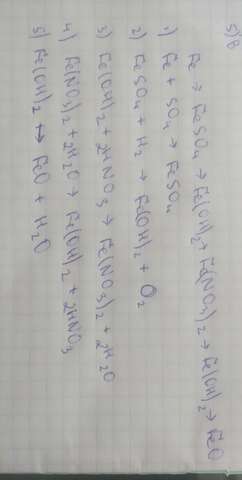 5) В
Fe → FeSO4 → Fe(OH)2 → Fe(NO3)2 → Fe(OH)2 → FeO
1) Fe + SO4 → FeSO4
2) FeSO4 + H2 → Fe(OH)2 + O2
3) Fe(OH)2 + 2HNO3 → Fe(NO3)2 + 2H2O
4) Fe(NO3)2 + 2H2O → Fe(OH)2 + 2HNO3
5) Fe(OH)2 → FeO + H2O